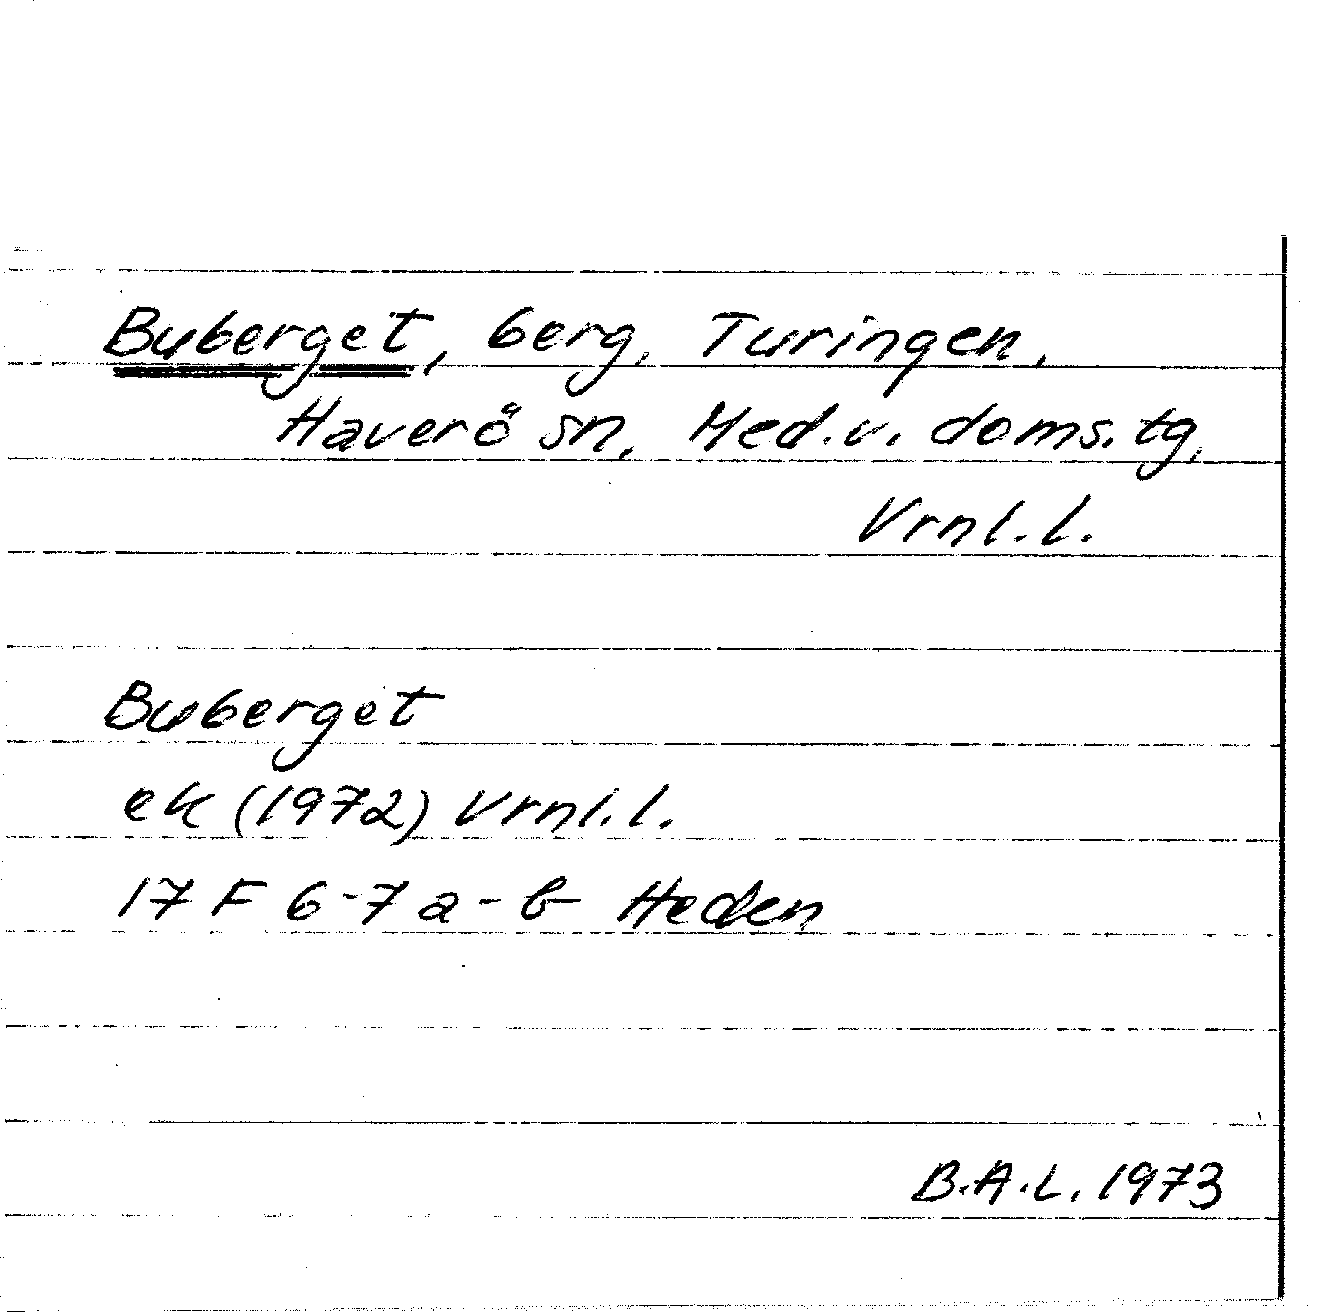 Buberget, berg, Turingen,
Haverö sn, Med.v. doms.tg,
Vrnl.l.
Buberget
ek (1972) Vrnl.l.
17 F 6-7 a-b Heden
B.A.L. 1973